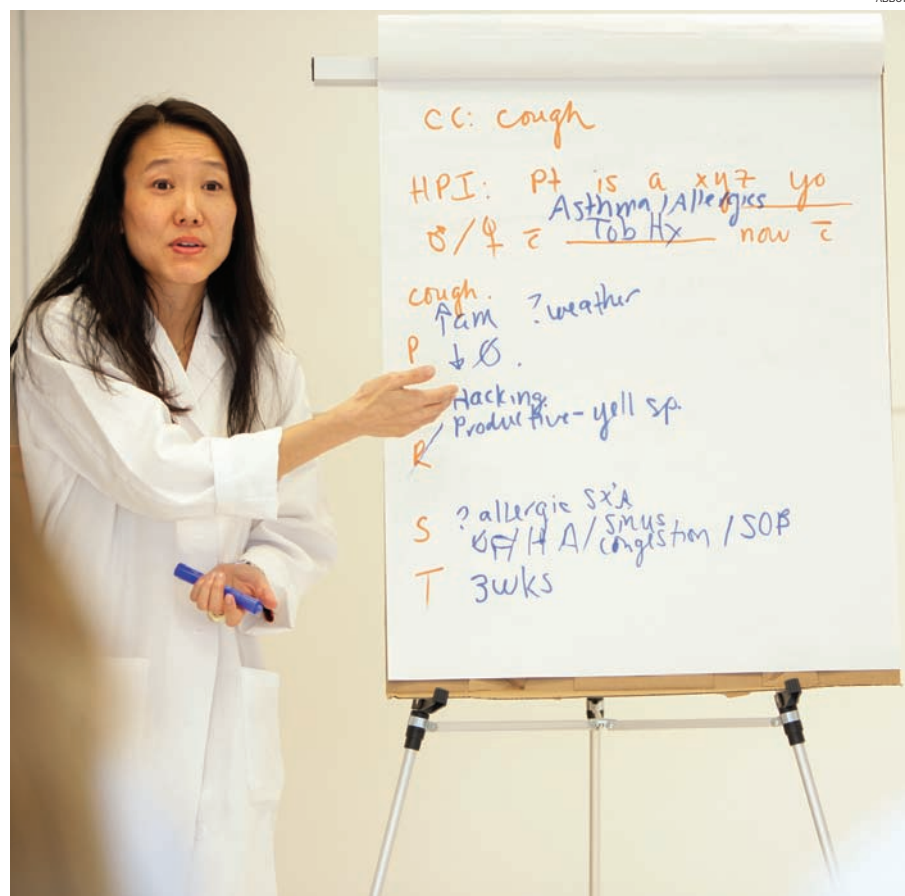 CC: cough
HPI: Pt is a xyz yo
Asthma/Allergies
♂/♀ c̄ Tob Hx now c̄
cough.
↑am ?weather
P ↓ Ø.
Hacking
Productive-yell sp.
R
S ?allergic Sx's
ØF/HA/sinus congestion/SOB
T 3wks